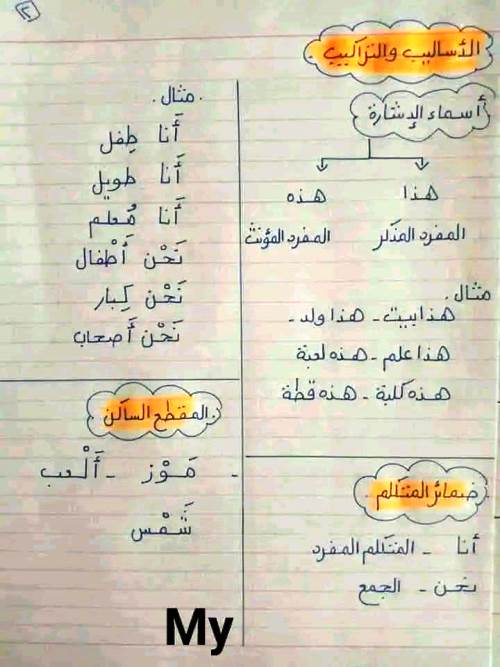 ٢
الأساليب والتراكيب
أسماء الإشارة
هذا هذه
المفرد المذكر المفرد المؤنث
مثال.
هذا بيت - هذا ولد -
هذا علم - هذه لعبة
هذه كلبة - هذه قطة
ضمائر المتكلم.
أنا - المتكلم المفرد
نحن - الجمع
مثال.
أَنا طِفل
أَنا طويل
أَنا مُعلم
نَحْن أَطْفال
نَحْن كِبار
نَحْن أَصحاب
المقطع الساكن.
- مَوْز - أَلْعب
شَمْس
My